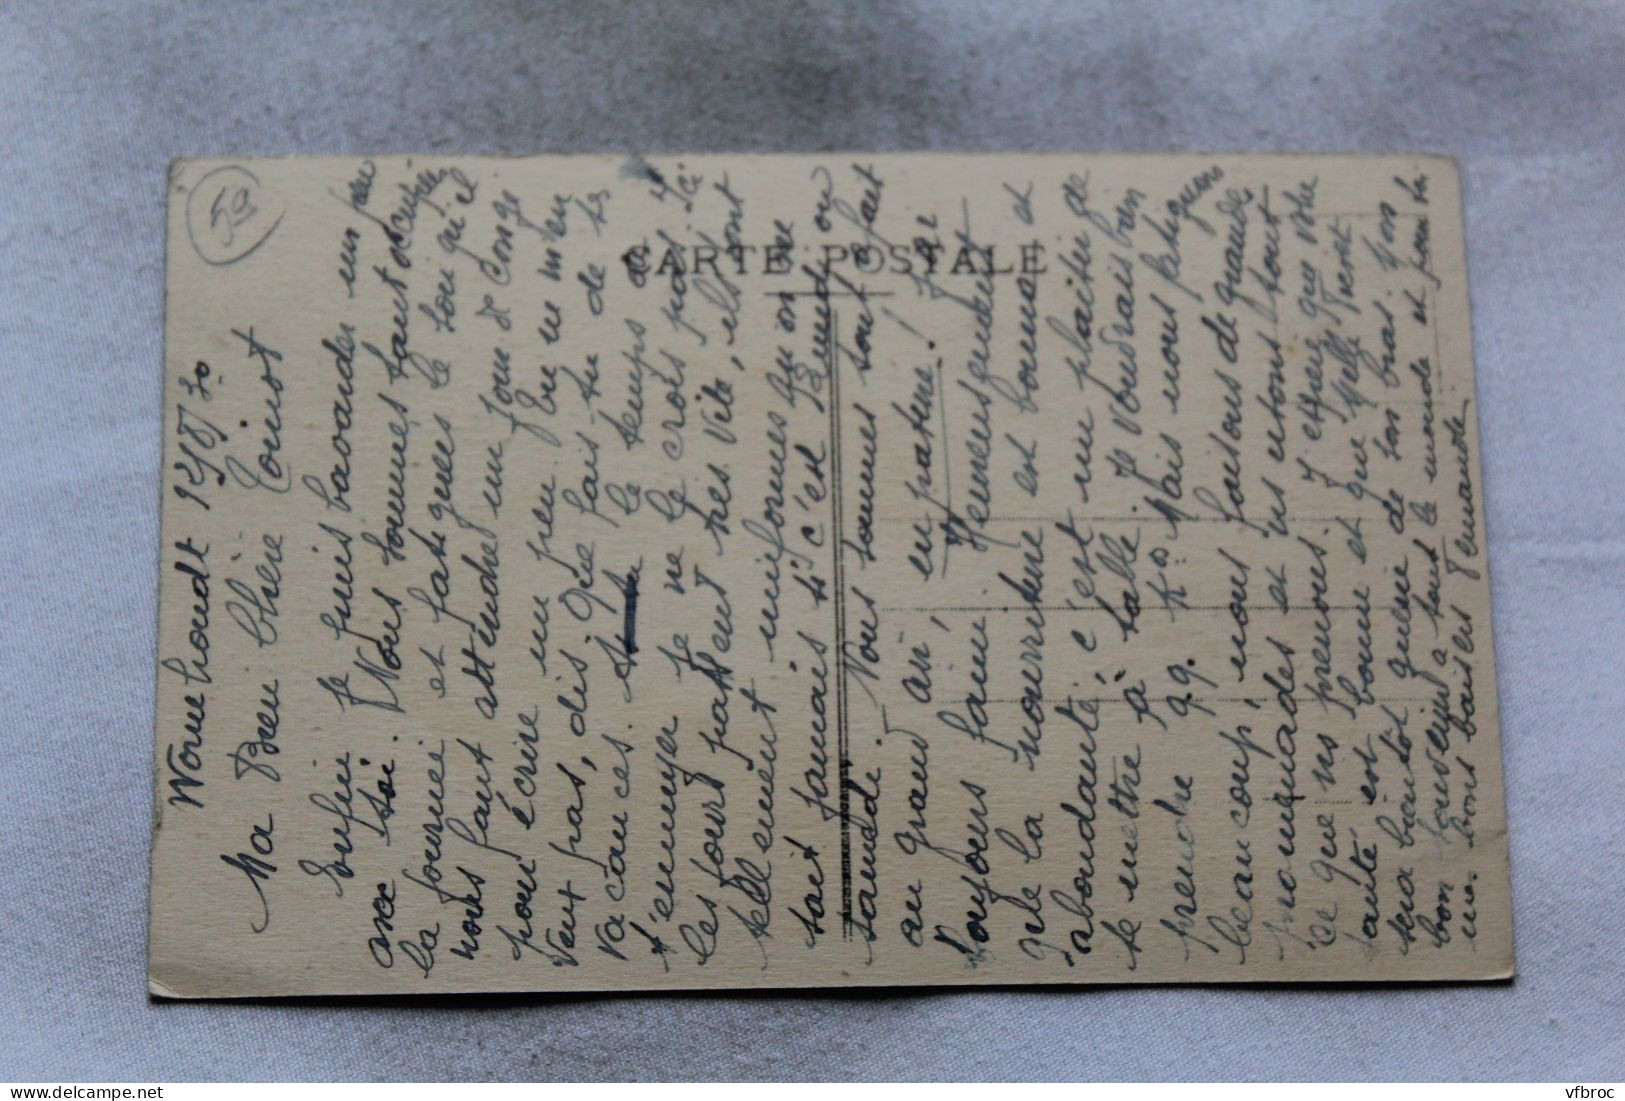 Wormhoudt 12/8/30
Ma Bien Chère Toinot
Enfin je puis bavarder un peu
avec toi. Nous sommes tant occupées
la journée et fatiguées le soir qu'il
nous faut attendre un jour de congé
pour écrire un peu. Tu ne m'en
veux pas, dis? Que fais-tu de tes
vacances. le temps de
t'ennuyer je ne le crois pas. Ici
les jours passent très vite, ils sont
tellement uniformes qu'on ne
sait jamais si c'est lundi ou
samedi. Nous sommes tout à fait
au grand air, en pature! J'ai
toujours faim. Heureusement
que la nourriture est bonne et
abondante, c'est un plaisir de
se mettre à table. Je voudrais bien
prendre qq. kos. Mais nous fatiguons
beaucoup, nous faisons de grandes
promenades et ns usons tout
ce que ns prenons. J'espère que votre
santé est bonne et que Melle
sera bientôt guérie de son bras. Mon
bon souvenir à tout le monde et pour toi
mes bons baisers Fernande
CARTE POSTALE
59
vfbroc